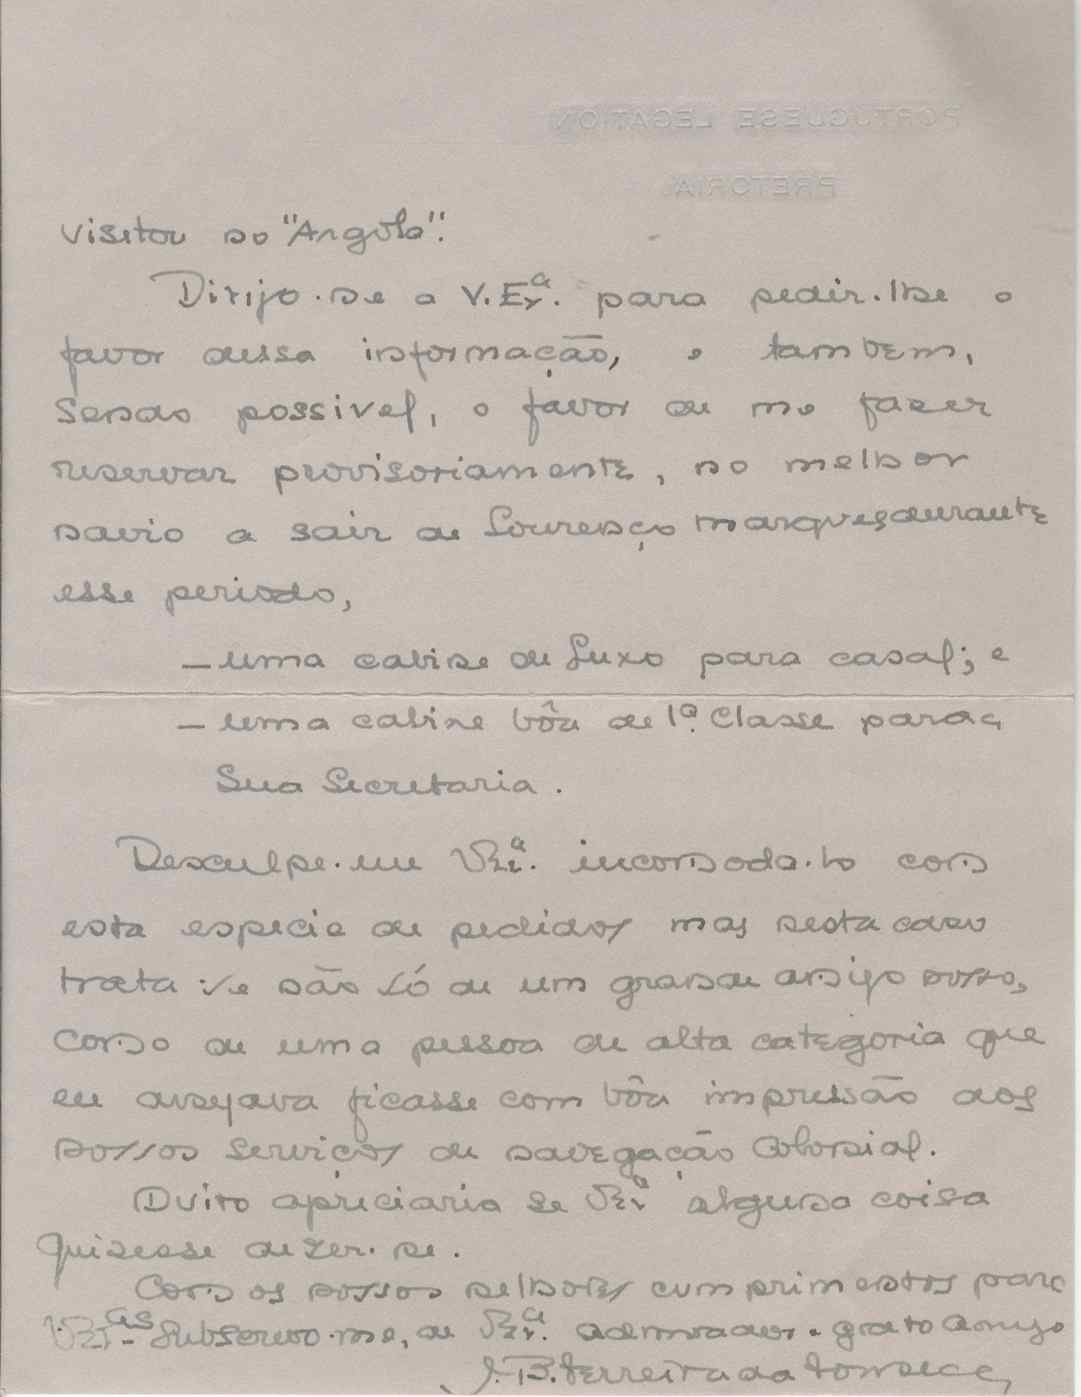 PORTUGUESE LEGATION
PRETORIA
visitou no "Angola".
Dirijo-me a V. Exª. para pedir-lhe o
favor dessa informação, e tambem,
sendo possivel, o favor de me fazer
reservar provisoriamente, no melhor
navio a sair de Lourenço Marques durante
esse periodo,
- uma cabine de Luxo para casal; e
- uma cabine bôa de 1ª. Classe para a
Sua Secretaria.
Desculpe-me V. Exª. incomoda-lo com
esta especie de pedidos mas neste caso
trata-se não só de um grande amigo nosso,
como de uma pessoa de alta categoria que
eu desejava ficasse com bôa impressão dos
nossos serviços de navegação Colonial.
Muito apreciaria se V. Exª alguma coisa
quizesse dizer-me.
Com os nossos melhores cumprimentos para
V. Exªs subscrevo-me, de V. Exª. admirador e grato amigo
J. B. Ferreira da Fonseca